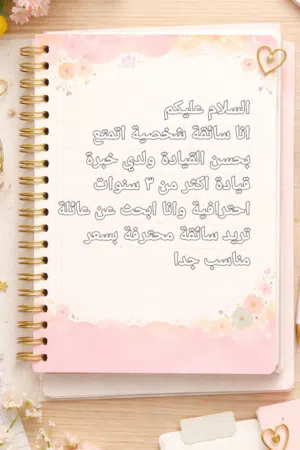 السلام عليكم
انا سائقة شخصية اتمتع
بحسن القيادة ولدي خبرة
قيادة اكثر من ٣ سنوات
احترافية وانا ابحث عن عائلة
تريد سائقة محترفة بسعر
مناسب جدا